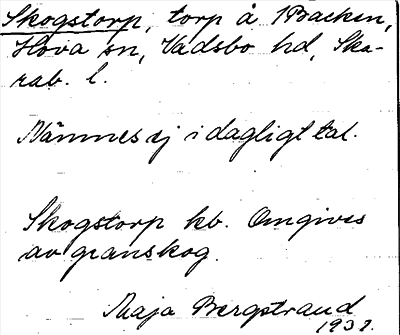 Skogstorp, torp å Backen,
Hova sn, Vadsbo hd, Ska-
rab. l.
Nämnes ej i dagligt tal.
Skogstorp kb. Omgives
av granskog.
Maja Bergstrand